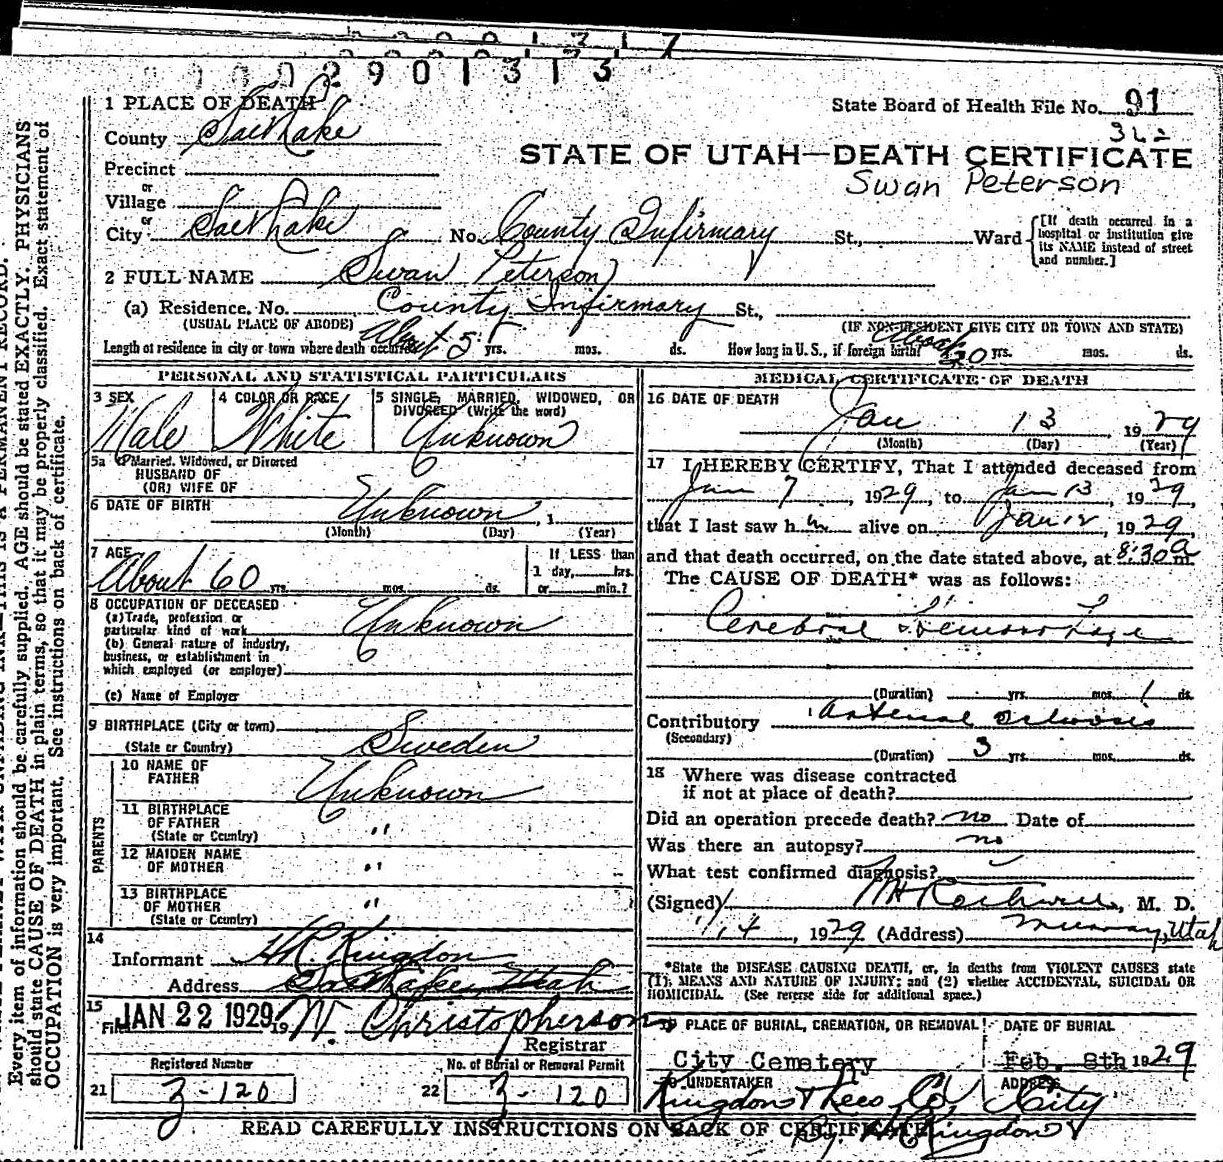 0001717
0029013 13
1 PLACE OF DEATH
County Salt Lake
Precinct
or
Village
or
City Salt Lake No. County Infirmary St., Ward
[If death occurred in a hospital or institution give its NAME instead of street and number.]
State Board of Health File No. 91
STATE OF UTAH—DEATH CERTIFICATE
Swan Peterson
2 FULL NAME Swan Peterson
(a) Residence. No. County Infirmary St.,
(USUAL PLACE OF ABODE) (IF NON-RESIDENT GIVE CITY OR TOWN AND STATE)
Length of residence in city or town where death occurred About 5 yrs. mos. ds. How long in U. S., if foreign birth? About 30 yrs. mos. ds.
PERSONAL AND STATISTICAL PARTICULARS
3 SEX Male
4 COLOR OR RACE White
5 SINGLE, MARRIED, WIDOWED, OR DIVORCED (Write the word) Unknown
5a If Married, Widowed, or Divorced
HUSBAND OF
(OR) WIFE OF
6 DATE OF BIRTH Unknown , 1
(Month) (Day) (Year)
7 AGE About 60 yrs. mos. ds.
If LESS than
1 day, hrs.
or min.?
8 OCCUPATION OF DECEASED
(a) Trade, profession or
particular kind of work Unknown
(b) General nature of industry,
business, or establishment in
which employed (or employer)
(c) Name of Employer
9 BIRTHPLACE (City or town)
(State or Country) Sweden
PARENTS
10 NAME OF FATHER Unknown
11 BIRTHPLACE OF FATHER (State or Country) "
12 MAIDEN NAME OF MOTHER "
13 BIRTHPLACE OF MOTHER (State or Country) "
14
Informant HR Kingdon
Address Salt Lake, Utah
15 Filed JAN 22 1929 19 W. Christopherson
Registrar
Registered Number
21 3-120
No. of Burial or Removal Permit
22 3-120
MEDICAL CERTIFICATE OF DEATH
16 DATE OF DEATH
Jan 13, 1929
(Month) (Day) (Year)
17 I HEREBY CERTIFY, That I attended deceased from
Jan 7, 1929, to Jan 13, 1929,
that I last saw him alive on Jan 12, 1929,
and that death occurred, on the date stated above, at 8:30 a m.
The CAUSE OF DEATH* was as follows:
Cerebral Hemorrhage
(Duration) yrs. mos. 1 ds.
Contributory Arterial Sclerosis
(Secondary)
(Duration) 3 yrs. mos. ds.
18 Where was disease contracted
if not at place of death?
Did an operation precede death? no Date of
Was there an autopsy? no
What test confirmed diagnosis?
(Signed) , M. D.
1/14, 1929 (Address) Murray, Utah
*State the DISEASE CAUSING DEATH, or, in deaths from VIOLENT CAUSES state
(1), MEANS AND NATURE OF INJURY; and (2) whether ACCIDENTAL, SUICIDAL OR
HOMICIDAL. (See reverse side for additional space.)
19 PLACE OF BURIAL, CREMATION, OR REMOVAL DATE OF BURIAL
City Cemetery Feb. 8th 1929
20 UNDERTAKER ADDRESS
Kingdon Theeo Co City
By HR Kingdon
READ CAREFULLY INSTRUCTIONS ON BACK OF CERTIFICATE
Every item of information should be carefully supplied. AGE should be stated EXACTLY. PHYSICIANS
should state CAUSE OF DEATH in plain terms, so that it may be properly classified. Exact statement of
OCCUPATION is very important. See instructions on back of certificate.